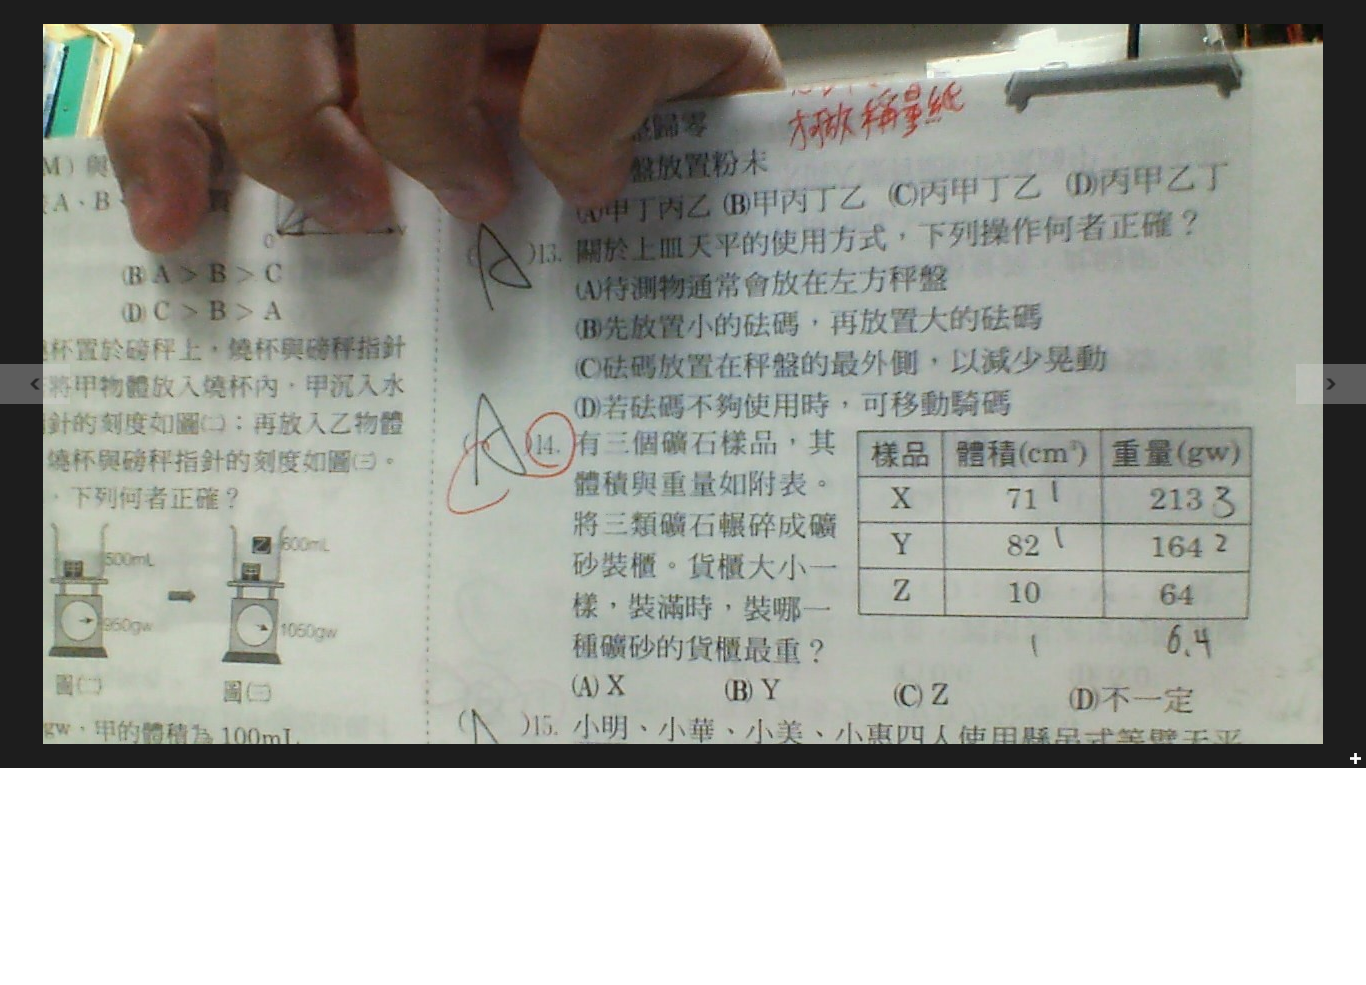 才放稱量紙
歸零
盤放置粉末
(A)甲丁丙乙 (B)甲丙丁乙 (C)丙甲丁乙 (D)丙甲乙丁
A )13. 關於上皿天平的使用方式，下列操作何者正確？
(A)待測物通常會放在左方秤盤
(B)先放置小的砝碼，再放置大的砝碼
(C)砝碼放置在秤盤的最外側，以減少晃動
(D)若砝碼不夠使用時，可移動騎碼
(A )14. 有三個礦石樣品，其
體積與重量如附表。
將三類礦石輾碎成礦
砂裝櫃。貨櫃大小一
樣，裝滿時，裝哪一
種礦砂的貨櫃最重？
樣品 體積(cm³) 重量(gw)
X 71 1 213 3
Y 82 1 164 2
Z 10 64
1 6.4
(A) X (B) Y (C) Z (D)不一定
( )15. 小明、小華、小美、小惠四人使用懸吊式等臂天平
M) 與
A、B
0 V
(B) A > B > C
(D) C > B > A
杯置於磅秤上，燒杯與磅秤指針
將甲物體放入燒杯內，甲沉入水
針的刻度如圖(二)；再放入乙物體
燒杯與磅秤指針的刻度如圖(三)。
，下列何者正確？
500mL 600mL
950gw 1050gw
圖(二) 圖(三)
gw，甲的體積為 100mL